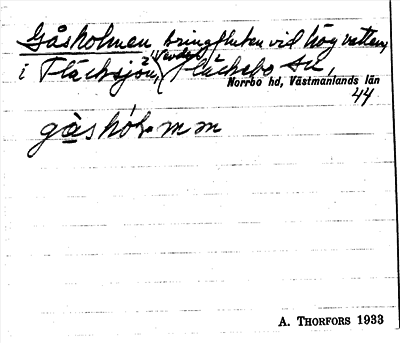 Gåsholmen, kringfluten vid hög vatten,
i Fläcksjön, Fläckebo sn,
Norrbo hd, Västmanlands län
44
gå̀shól·mm
A. THORFORS 1933